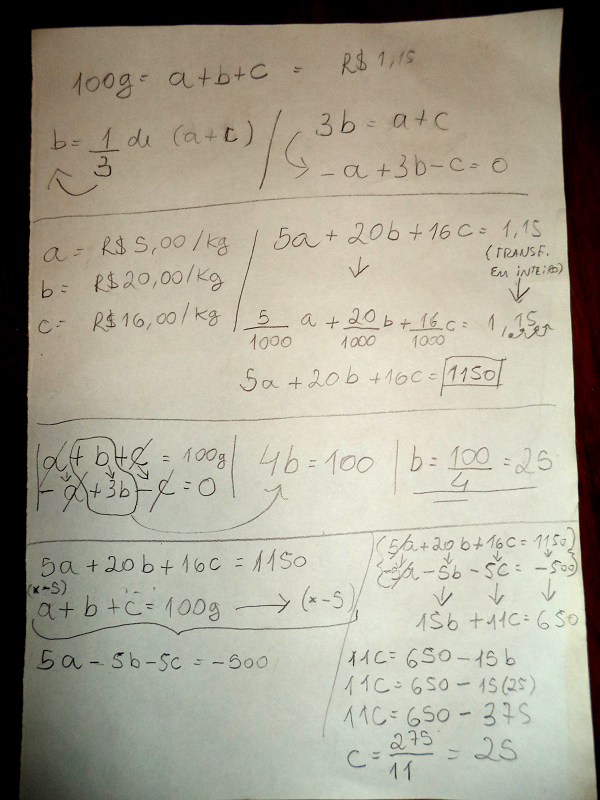 100g = a+b+c = R$ 1,15
b = 1/3 de (a+c)
3b = a+c
-a+3b-c=0
a = R$ 5,00/kg
b = R$20,00/kg
c = R$16,00/kg
5a + 20b + 16c = 1,15
(TRANSF. EM INTEIRO)
5/1000 a + 20/1000 b + 16/1000 c = 1,15
5a + 20b + 16c = 1150
a + b + c = 100g
- a + 3b - c = 0
4b = 100
b = 100/4 = 25
5a + 20b + 16c = 1150
(x-5)
a + b + c = 100g → (x-5)
5a - 5b - 5c = -500
(5a+20b+16c = 1150)
-5a - 5b - 5c = -500
15b + 11c = 650
11c = 650 - 15b
11c = 650 - 15(25)
11c = 650 - 375
c = 275/11 = 25